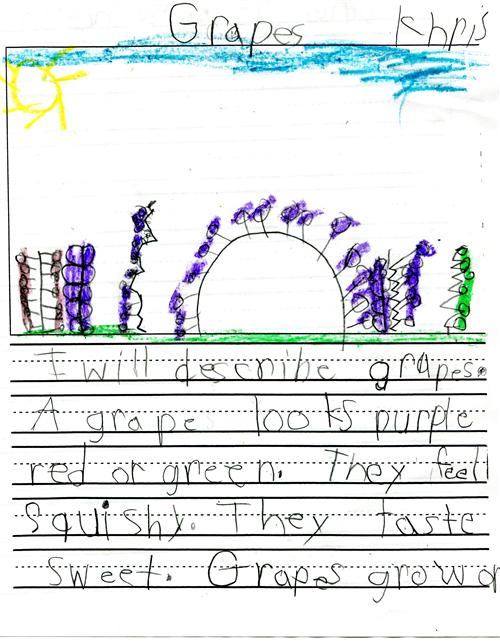 Grapes Khris
I will describe grapes.
A grape looks purple
red or green. They feel
squishy. They taste
sweet. Grapes grow o